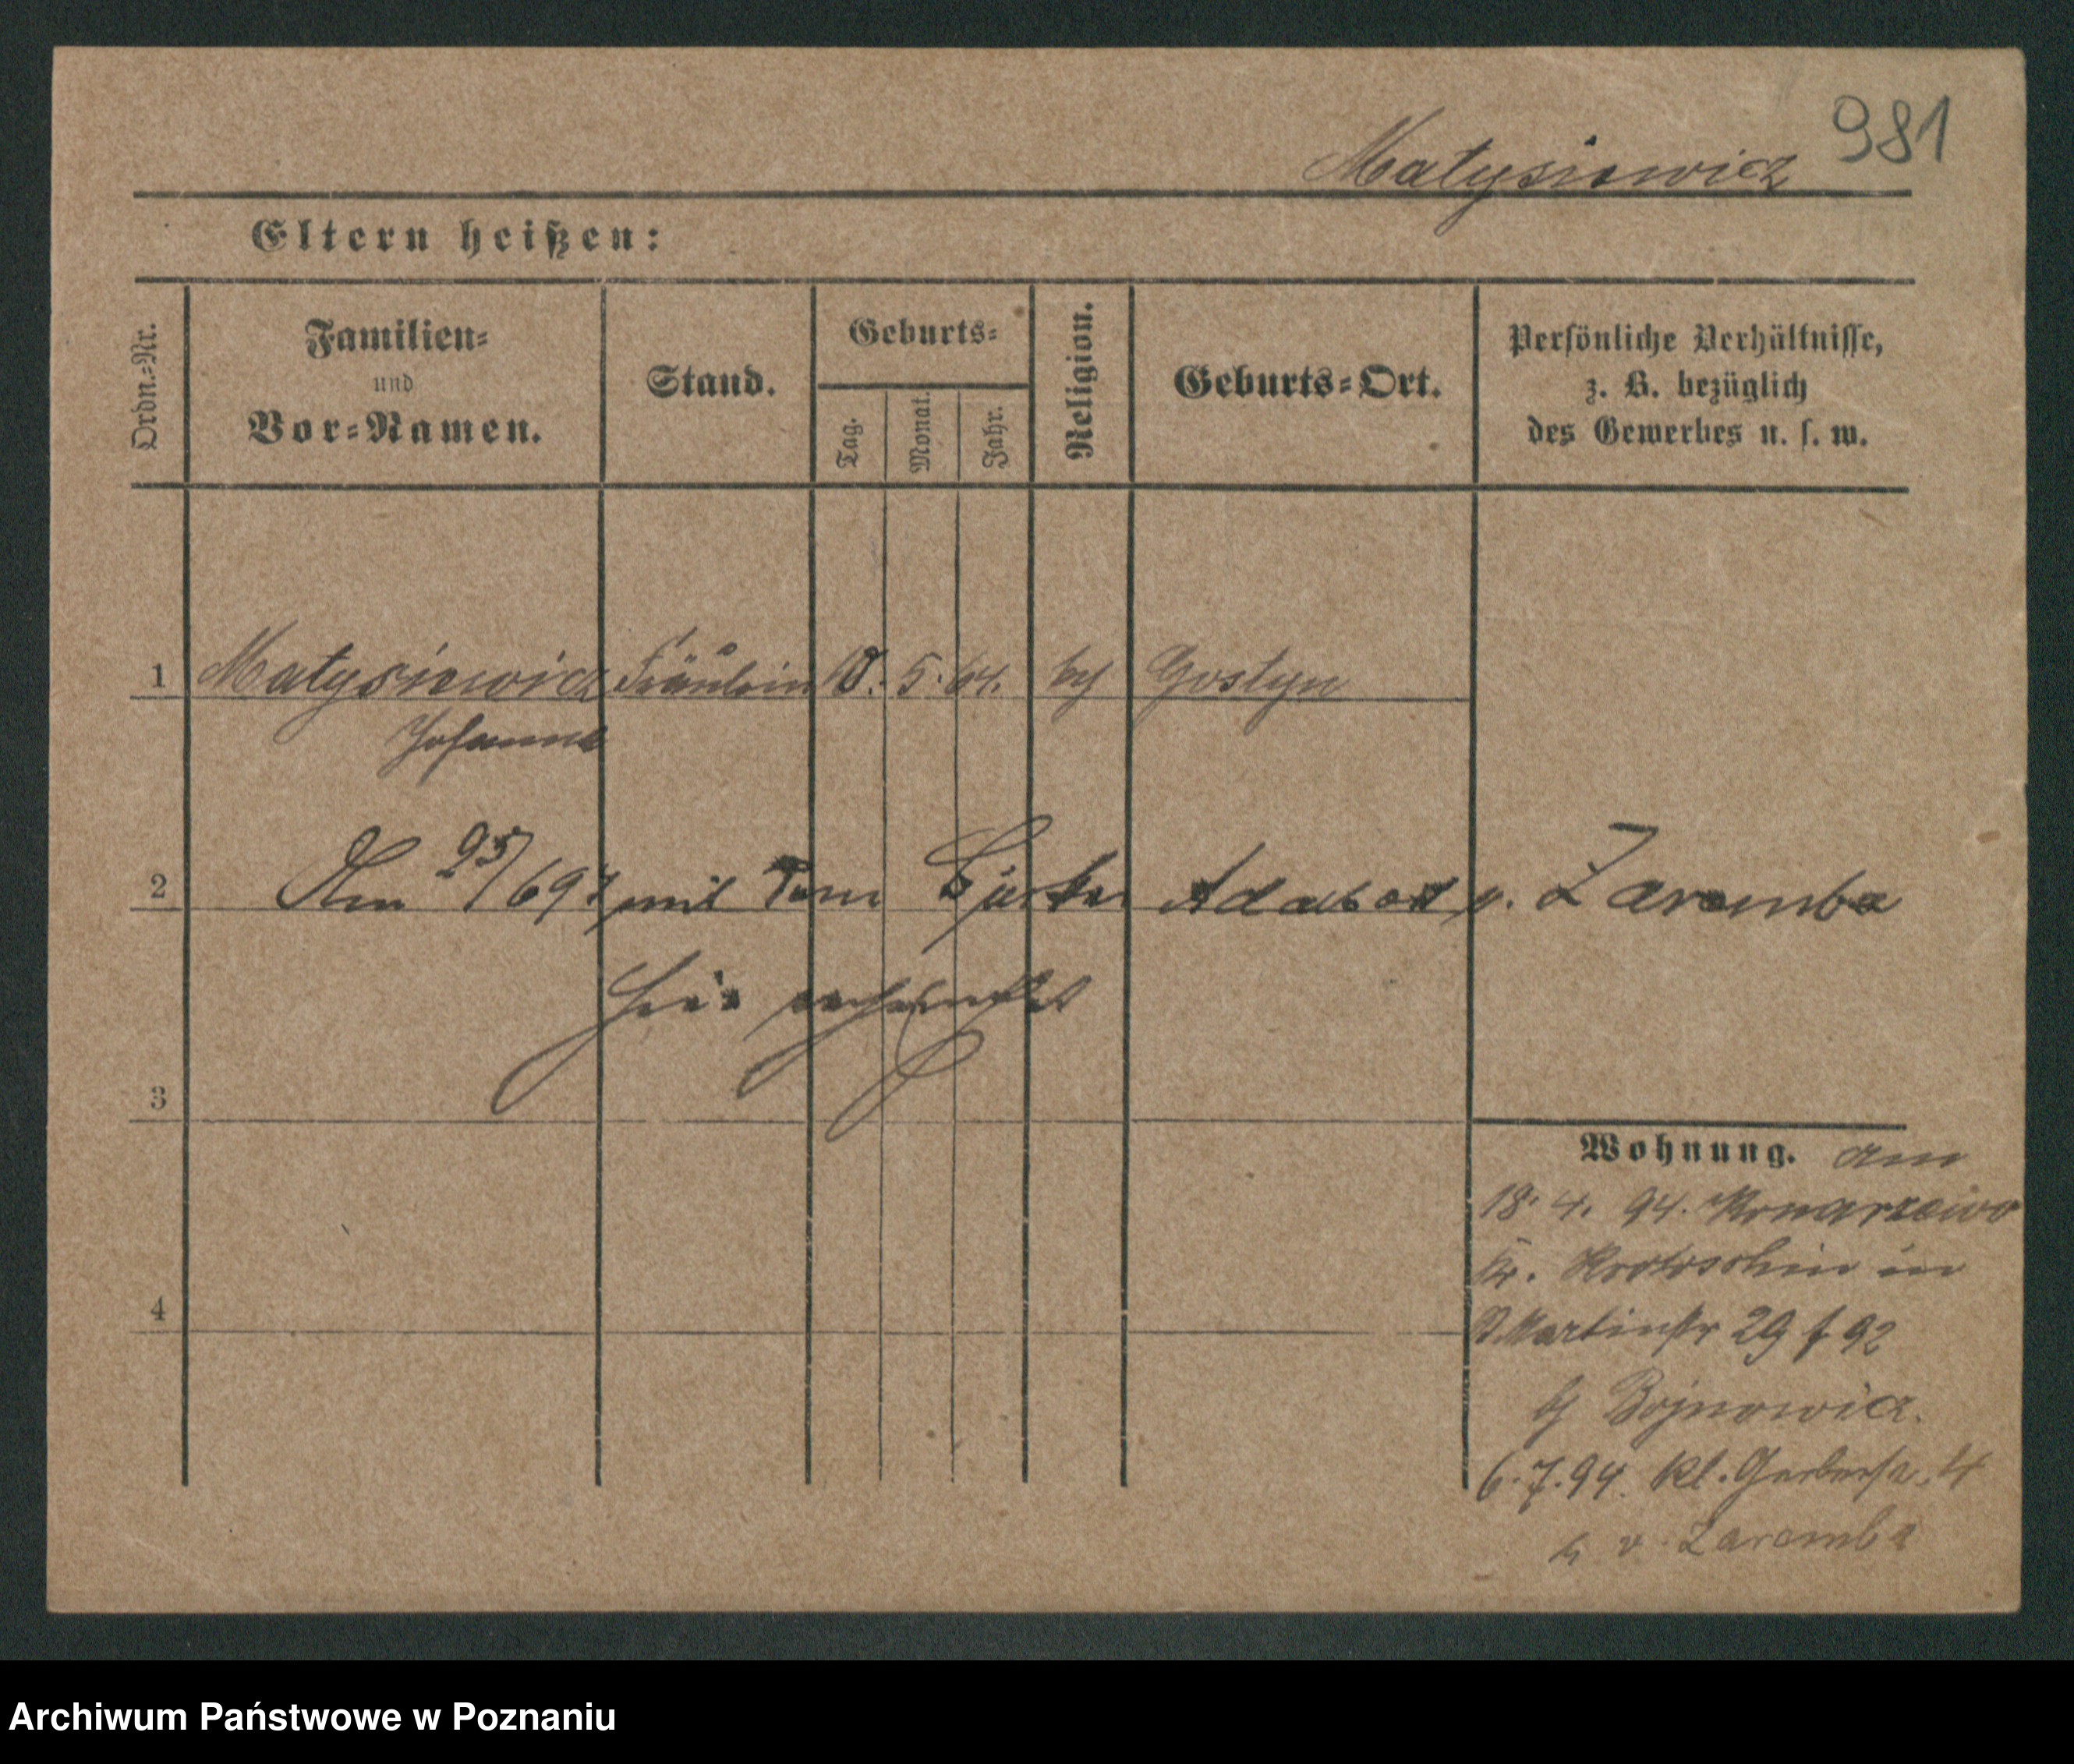 981
Matysiewicz
Eltern heißen:
Ordn.-Nr.
Familien-
und
Vor-Namen.
Stand.
Geburts-
Tag.
Monat.
Jahr.
Religion.
Geburts-Ort.
Persönliche Verhältnisse,
z. B. bezüglich
des Gewerbes u. s. w.
1 Matysiewicz Fräulein 10. 5. 64. Gostyn
Johanna
2 Am 25/6 94 mit dem v. Zaremba
hier
3
Wohnung. am
18. 4. 94. Konarzewo
Kr. Krotoschin in
St. Martinstr 29 f 92
b/ Bojnowicz.
4
6. 7. 94. Kl. Gerberstr. 4
b v. Zaremba
Archiwum Państwowe w Poznaniu